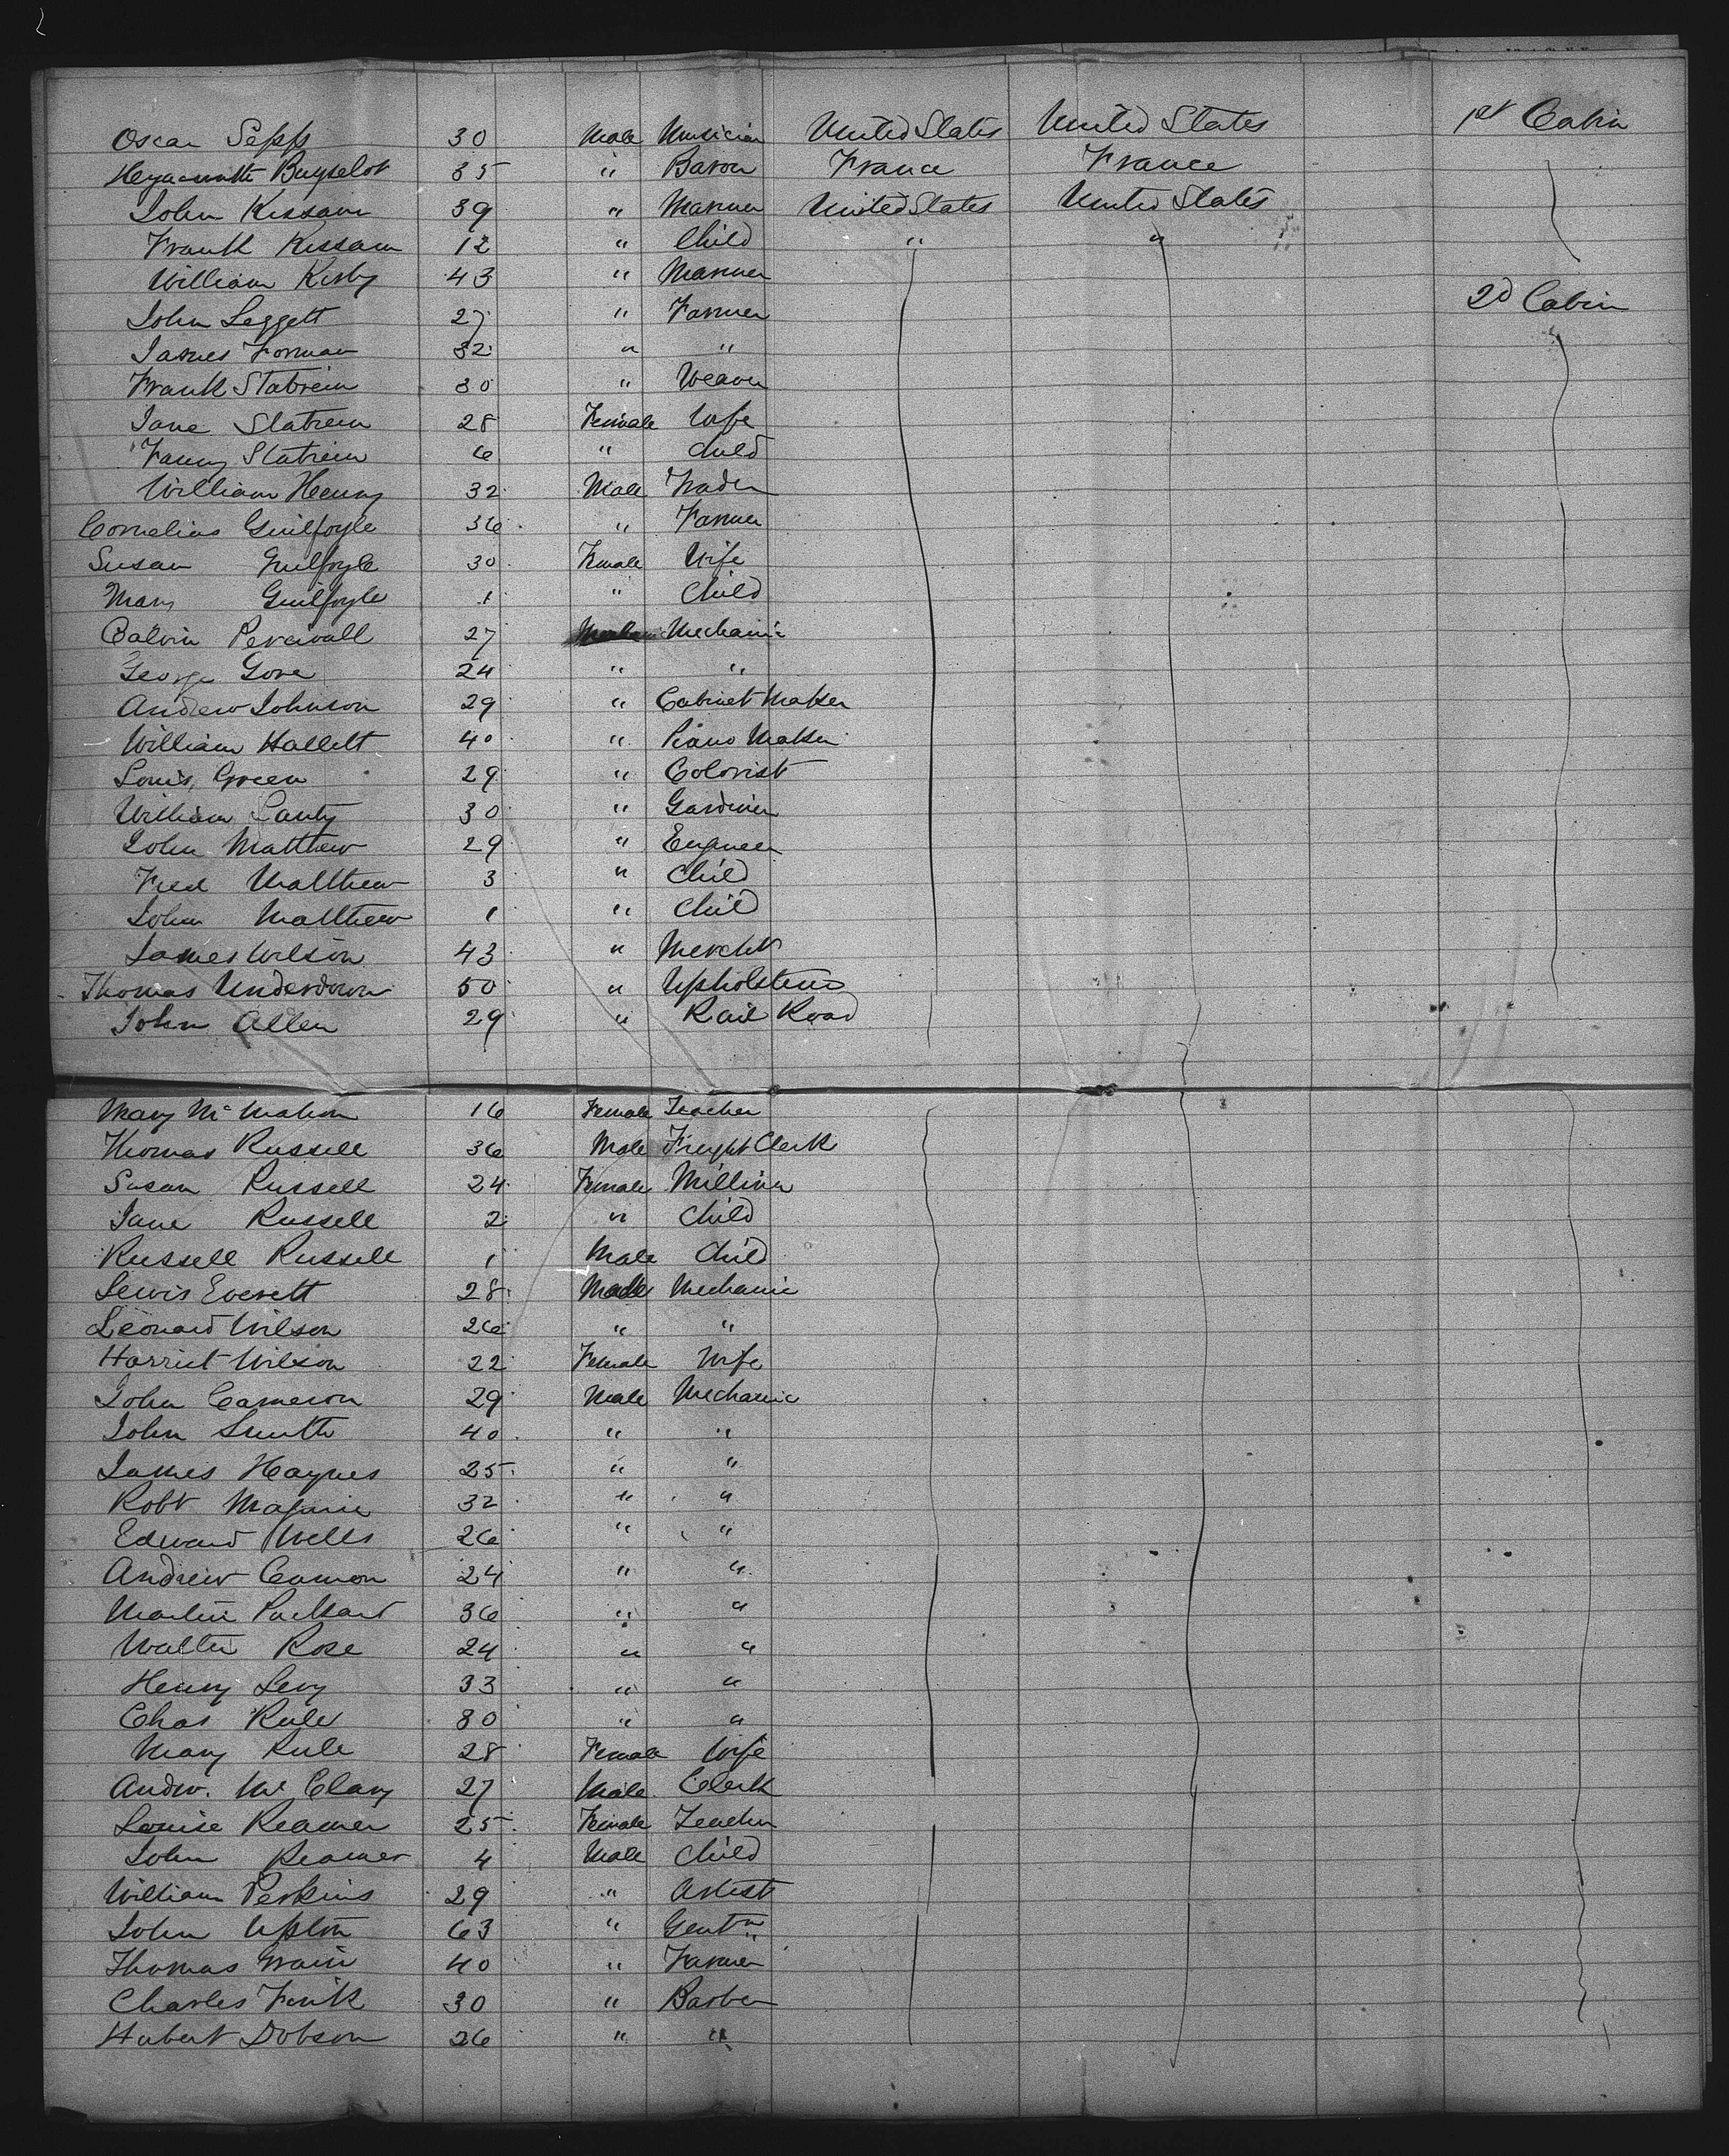 Oscar Sepp 30 Male Musician United States United States 1st Cabin
35 " Baron France France
John Kissam 39 " Mariner United States United States
Frank Kissam 12 " Child " "
William Kirby 43 " Mariner
John Leggett 27 " Farmer 2d Cabin
James Forman 32 " "
Frank Statrein 30 " Weaver
Jane Statrein 28 Female Wife
Fanny Statrein 6 " Child
William Henry 32 Male Trader
Cornelius Guilfoyle 36 " Farmer
Susan Guilfoyle 30 Female Wife
Mary Guilfoyle 1 " Child
Calvin Percivall 27 Mechanic
George Gore 24 " "
Andrew Johnson 29 " Cabinet Maker
William Hallett 40 " Piano Maker
Louis Green 29 " Colorist
William Canty 30 " Gardiner
John Matthew 29 " Engineer
Fred Matthew 3 " Child
John Matthew 1 " Child
James Wilson 43 " Mercht
Thomas Underdown 50 " Upholsterer
John Allen 29 " Rail Road
Mary McMahon 16 Female Teacher
Thomas Russell 36 Male Freight Clerk
Susan Russell 24 Female Milliner
Jane Russell 2 " Child
Russell Russell 1 Male Child
Lewis Everett 28 Male Mechanic
Leonard Wilson 26 " "
Harriet Wilson 22 Female Wife
John Cameron 29 Male Mechanic
John Smith 40 " "
James Haynes 25 " "
Robt Maguire 32 " "
Edward Wells 26 " "
Andrew Cannon 24 " "
Martin Packard 36 " "
Walter Rose 24 " "
Henry Levy 33 " "
Chas Rule 30 " "
Mary Rule 28 Female Wife
Andw. McClary 27 Male Clerk
Louise Reamer 25 Female Teacher
John Reamer 4 Male Child
William Perkins 29 " Artist
John Upton 63 " Gentn
Thomas 40 " Farmer
Charles Fink 30 " Barber
Hubert Dobson 26 " "